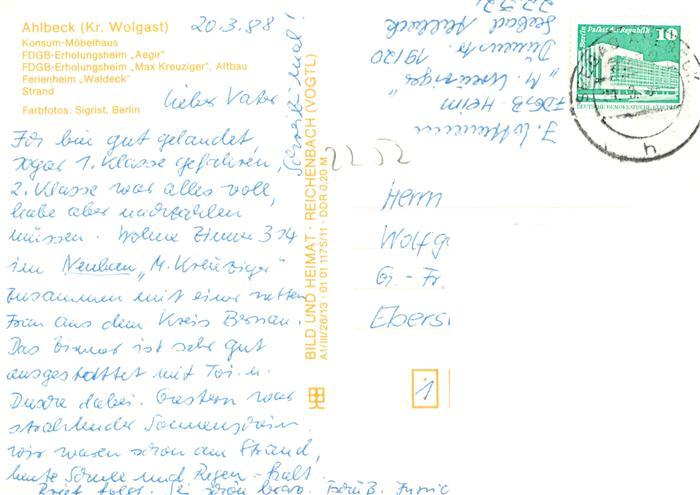 Ahlbeck (Kr. Wolgast)
Konsum-Möbelhaus
FDGB-Erholungsheim „Aegir"
FDGB-Erholungsheim „Max Kreuziger", Altbau
Ferienheim „Waldeck"
Strand
Farbfotos: Sigrist, Berlin
20.3.88
Lieber Vater
Ich bin gut gelandet,
sogar 1. Klasse gefahren,
2. Klasse war alles voll,
habe aber nachzahlen
müssen. Wohne Zimmer 314
im Neubau „M. Kreuziger"
zusammen mit einer netten
Frau aus dem Kreis Bernau.
Das Zimmer ist sehr gut
ausgestattet mit Toi. u.
Dusche dabei. Gestern war
strahlender Sonnenschein
wir waren schon am Strand,
heute Schnee und Regen - kalt.
Brief folgt. Sei schön brav.
Schreib mal!
BILD UND HEIMAT · REICHENBACH (VOGTL)
A1/III/26/13 · 01 01 1175/11 · DDR 0,20 M
2252
FDGB-Heim
„M. Kreuziger"
Dünenstr. 19/20
Seebad Ahlbeck
2252
Berlin, Palast der Republik
10
DEUTSCHE DEMOKRATISCHE REPUBLIK
h
Herrn
Wolfg
G. - Fr.
Ebers
1